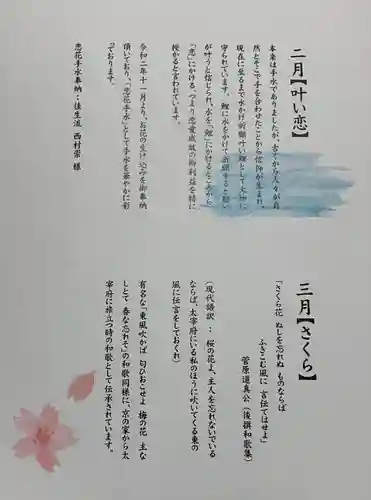 二月【叶い恋】
本来は手水でありましたが、古くから人々が自
然とそこで手を合わせたことから信仰が生まれ、
現在に至るまで水かけ祈願叶い鯉として大切に
守られています。鯉に水をかけて祈願すると願い
が叶うと信じられ、水を「鯉」にかけるところから
「恋」にかける、つまり恋愛成就の御利益を特に
授かると言われています。
令和二年十一月より、お花の生け込みを御奉納
頂いており、「恋花手水」として手水を華やかに彩
っております。
恋花手水奉納：佳生流 西村崇 様
三月【さくら】
「さくら花 ぬしを忘れぬ ものならば
ふきこむ風に 言伝てはせよ」
菅原道真公（後撰和歌集）
（現代語訳：桜の花よ、主人を忘れないでいる
ならば、太宰府にいる私のほうに吹いてくる東の
風に伝言をしておくれ）
有名な「東風吹かば 匂ひおこせよ 梅の花 主な
しとて 春な忘れそ」の和歌同様に、京の家から太
宰府に旅立つ時の和歌として伝承されています。